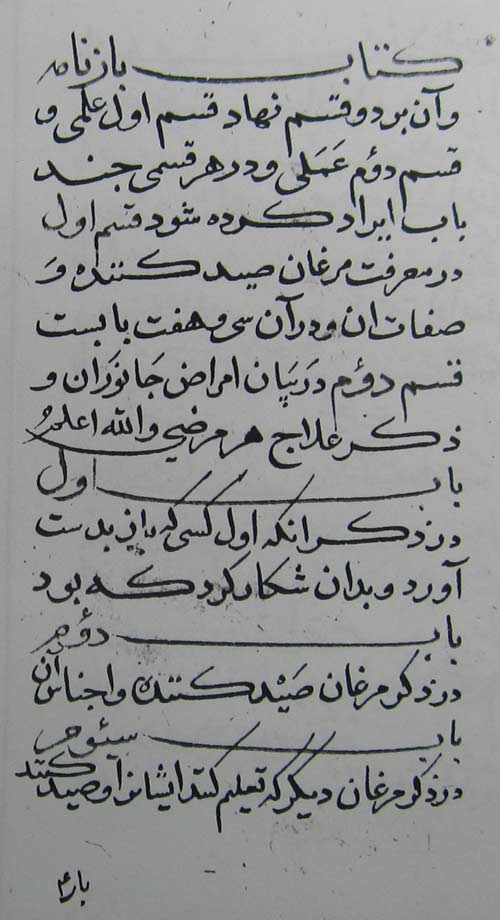 کتاب بازنامه
وآن بر دو قسم نهاد قسم اول علمی و
قسم دؤم عَمَلی و در هر قسمی جند
باب ایراد کرده شود قسم اول
در معرفت مرغان صید کننده وَ
صفات ان و در آن سی و هفت بابست
قسم دؤم در بَیان امراض جَانوَران و
ذکر علاج هر مرضی والله اعلمُ
باب اول
در ذکر انکه اول کسی که باز بدست
آورد و بدان شکار کرد که بود
باب دؤم
در ذکر مرغان صَیْد کننده و اجناس آن
باب سئوم
در ذکر مرغان دیگر که تعلیم کنند ایشانرا و صید کنند